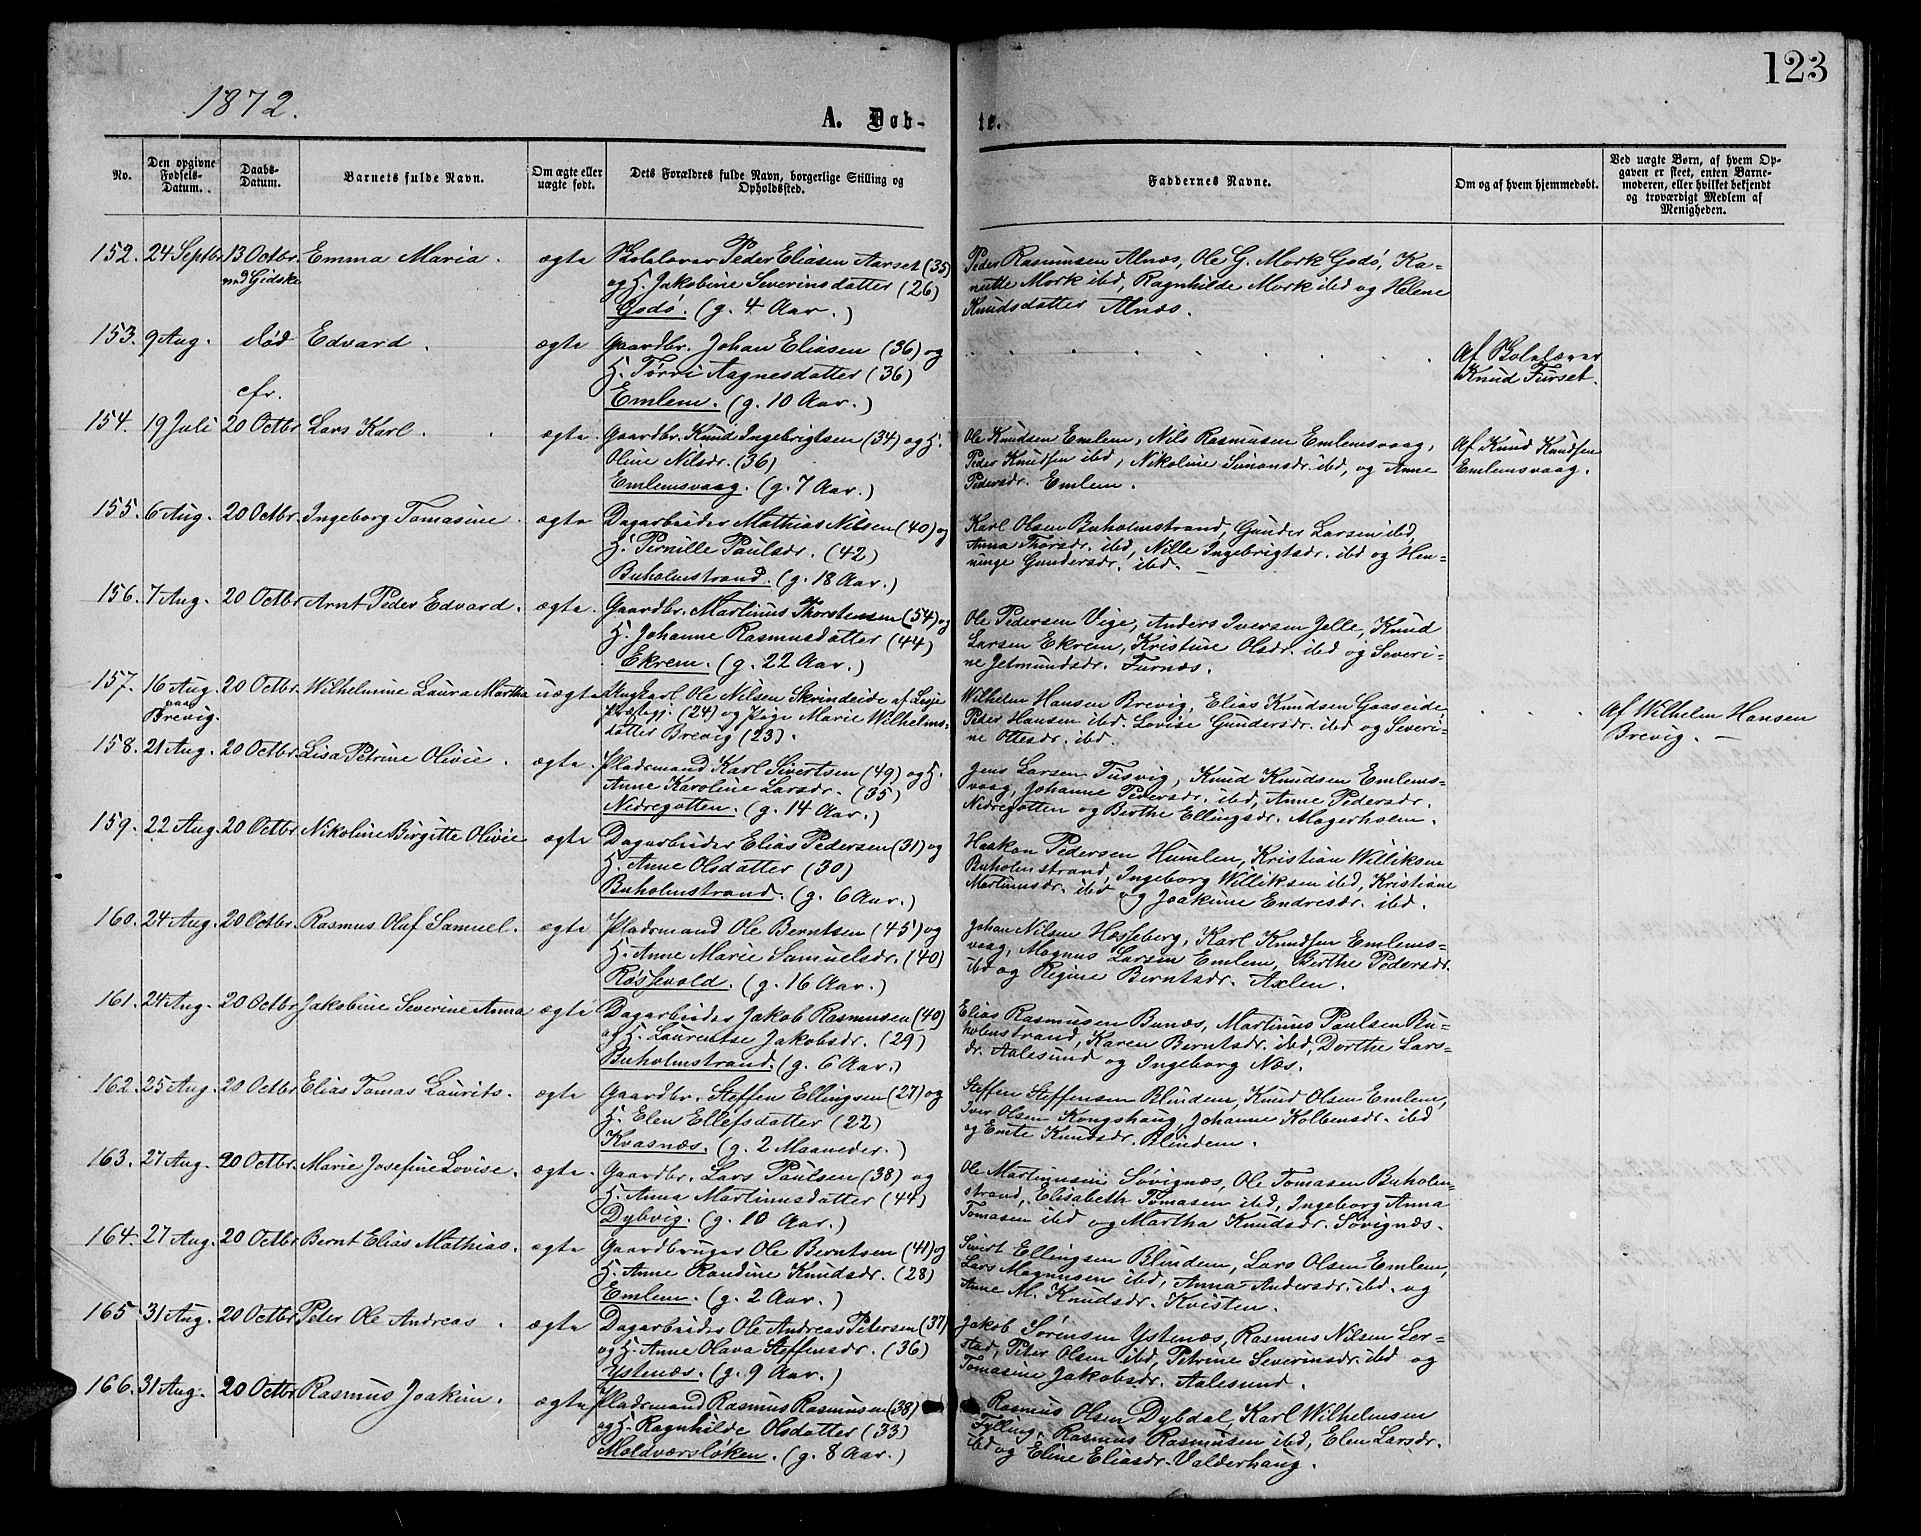 123
1872.
A. Døb-
te.
No.
Den opgivne Fødsels-Datum.
Daabs-Datum.
Barnets fulde Navn.
Om ægte eller uægte født.
Dets Forældres fulde Navn, borgerlige Stilling og Opholdssted.
Faddernes Navne.
Om og af hvem hjemmedøbt.
Ved uægte Børn, af hvem Opgaven er skeet, enten Barnemoderen, eller hvilket bekjendt og troværdigt Medlem af Menigheden.
152. 24 Septbr. 13 Octbr. Emma Maria. ægte Skolelærer Peder Eliasen Aarset (35)
ved Gidske og H. Jakobine Severinsdatter (26)
Godø. (g. 4 Aar.)
Peder Rasmussen Alnæs, Ole G. Mork Godø, Ka-
nutte Mork ibd, Ragnhilde Mork ibd og Helene
Knudsdatter Alnæs.
153. 9 Aug. død Edvard. ægte Gaardbr. Johan Eliasen (36) og
H. Torri Aagnesdatter (36)
cfr. Emlem. (g. 10 Aar.)
Af Skolelærer
Knud Furset.
154. 19 Juli 20 Octbr. Lars Karl. ægte. Gaardbr. Knud Ingebrigtsen (34) og H.
Oline Nilsdr. (36)
Emlemsvaag. (g. 7 Aar.)
Ole Knudsen Emlem, Nils Rasmusen Emlemsvaag,
Peder Knudsen ibd, Nikoline Simonsdr. ibd, og Anne
Pedersdr. Emlem.
Af Knud Knudsen
Emlemsvaag.
155. 6 Aug. 20 Octbr. Ingeborg Tomasine. ægte Dagarbeider Mathias Nilsen (40) og
H. Pernille Paulsdr. (42)
Buholmstrand. (g. 18 Aar.)
Karl Olsen Buholmstrand, Gunder Larsen ibd,
Anna Thorsdr. ibd, Nille Ingebrigtsdr. ibd og Hen-
ninge Gundersdr. ibd.
156. 7 Aug. 20 Octbr. Arnt Peder Edvard. ægte. Gaardbr. Martinus Thorstensen (54) og
H. Johanne Rasmusdatter (44)
Ekrem. (g. 22 Aar.)
Ole Pedersen Vige, Anders Iversen Jelle, Knud
Larsen Ekrem, Kristine Olsdr. ibd og Severi-
ne Jetmundsdr. Furnæs.
157. 16 Aug. 20 Octbr. Wilhelmine Laura Martha uægte Ungkarl Ole Nilsen Skrindeide af Lesje
paa Brevig. Præstegj. (24) og Pige Marie Wilhelms-
datter Brevig (23).
Wilhelm Hansen Brevig, Elias Knudsen Gaaseide,
Peder Hansen ibd. Lovise Gundersdr. ibd og Severi-
ne Ottesdr. ibd.
Af Wilhelm Hansen
Brevig.
158. 21 Aug. 20 Octbr. Lisa Petrine Olivie. ægte. Pladsmand Karl Sivertsen (49) og H.
Anne Karoline Larsdr. (35)
Nedregotten. (g. 14 Aar.)
Jens Larsen Tusvig, Knud Knudsen Emlems-
vaag, Johanne Pedersdr. ibd, Anne Pedersdr.
Nedregotten og Berthe Ellingsdr. Magerholm.
159. 22 Aug. 20 Octbr. Nikoline Birgitte Olivie ægte Dagarbeider Elias Pedersen (31) og
H. Anne Olsdatter (30)
Buholmstrand. (g. 6 Aar.)
Haakon Pedersen Humlen, Kristian Williksen
Buholmstrand, Ingeborg Williksen ibd, Kristiane
Martinusdr. ibd og Joakime Endresdr. ibd.
160. 24 Aug. 20 Octbr. Rasmus Oluf Samuel. ægte Pladsmand Ole Berntsen (45) og
H. Anne Marie Samuelsdr. (40)
Røssevold. (g. 16 Aar.)
Johan Nilsen Hesseberg, Karl Knudsen Emlems-
vaag, Magnus Larsen Emlem, Berthe Pedersdr.
ibd og Regine Berntsdr. Axlen.
161. 24 Aug. 20 Octbr. Jakobine Severine Anna ægte Dagarbeider Jakob Rasmusen (40)
og H. Laurentse Jakobsdr. (29)
Buholmstrand. (g. 6 Aar.)
Elias Rasmussen Bunæs, Martinus Paulsen Bu-
holmstrand, Karen Berntsdr. ibd, Dorthe Lars-
dr. Aalesund og Ingeborg Næs.
162. 25 Aug. 20 Octbr. Elias Tomas Laurits. ægte Gaardbr. Steffen Ellingsen (27) og
H. Elen Ellefsdatter (22)
Kvasnæs. (g. 2 Maaneder.)
Steffen Steffensen Blindem, Knud Olsen Emlem,
Iver Olsen Kongshaug, Johanne Kolbensdr. ibd
og Emte Knudsdr. Blindem.
163. 27 Aug. 20 Octbr. Marie Josefine Lovise. ægte. Gaardbr. Lars Paulsen (38) og
H. Anna Martinusdatter (44)
Dybvig. (g. 10 Aar.)
Ole Martinusen Søvignæs, Ole Tomasen Buholm-
strand, Elisabeth Tomasen ibd, Ingeborg Anna
Tomasen ibd og Martha Knudsdr. Søvignæs.
164. 27 Aug. 20 Octbr. Bernt Elias Mathias. ægte Gaardbruger Ole Berntsen (41) og
H. Anne Randine Knudsdr. (28)
Emlem. (g. 2 Aar.)
Sivert Ellingsen Blindem, Lars Olsen Emlem,
Lars Magnusen ibd, Anna Andersdr. ibd. og
Anne M. Knudsdr. Kvisten.
165 31 Aug. 20 Octbr. Peter Ole Andreas. ægte Dagarbeider Ole Andreas Petersen (37)
og H. Anne Olava Steffensdr. (36)
Ystenæs. (g. 9 Aar.)
Jakob Sørensen Ystenæs, Rasmus Nilsen Ler-
stad, Peter Olsen ibd, Petrine Severinsdr. ibd og
Tomasine Jakobsdr. Aalesund.
166. 31 Aug. 20 Octbr. Rasmus Joakim. ægte Pladsmand Rasmus Rasmusen (38)
og H. Ragnhilde Olsdatter (33)
Moldværsløken. (g. 8 Aar.)
Rasmus Olsen Dybdal, Karl Wilhelmsen
Fylling, Rasmus Rasmusen ibd, Elen Larsdr.
ibd og Eline Eliasdr. Valderhaug.